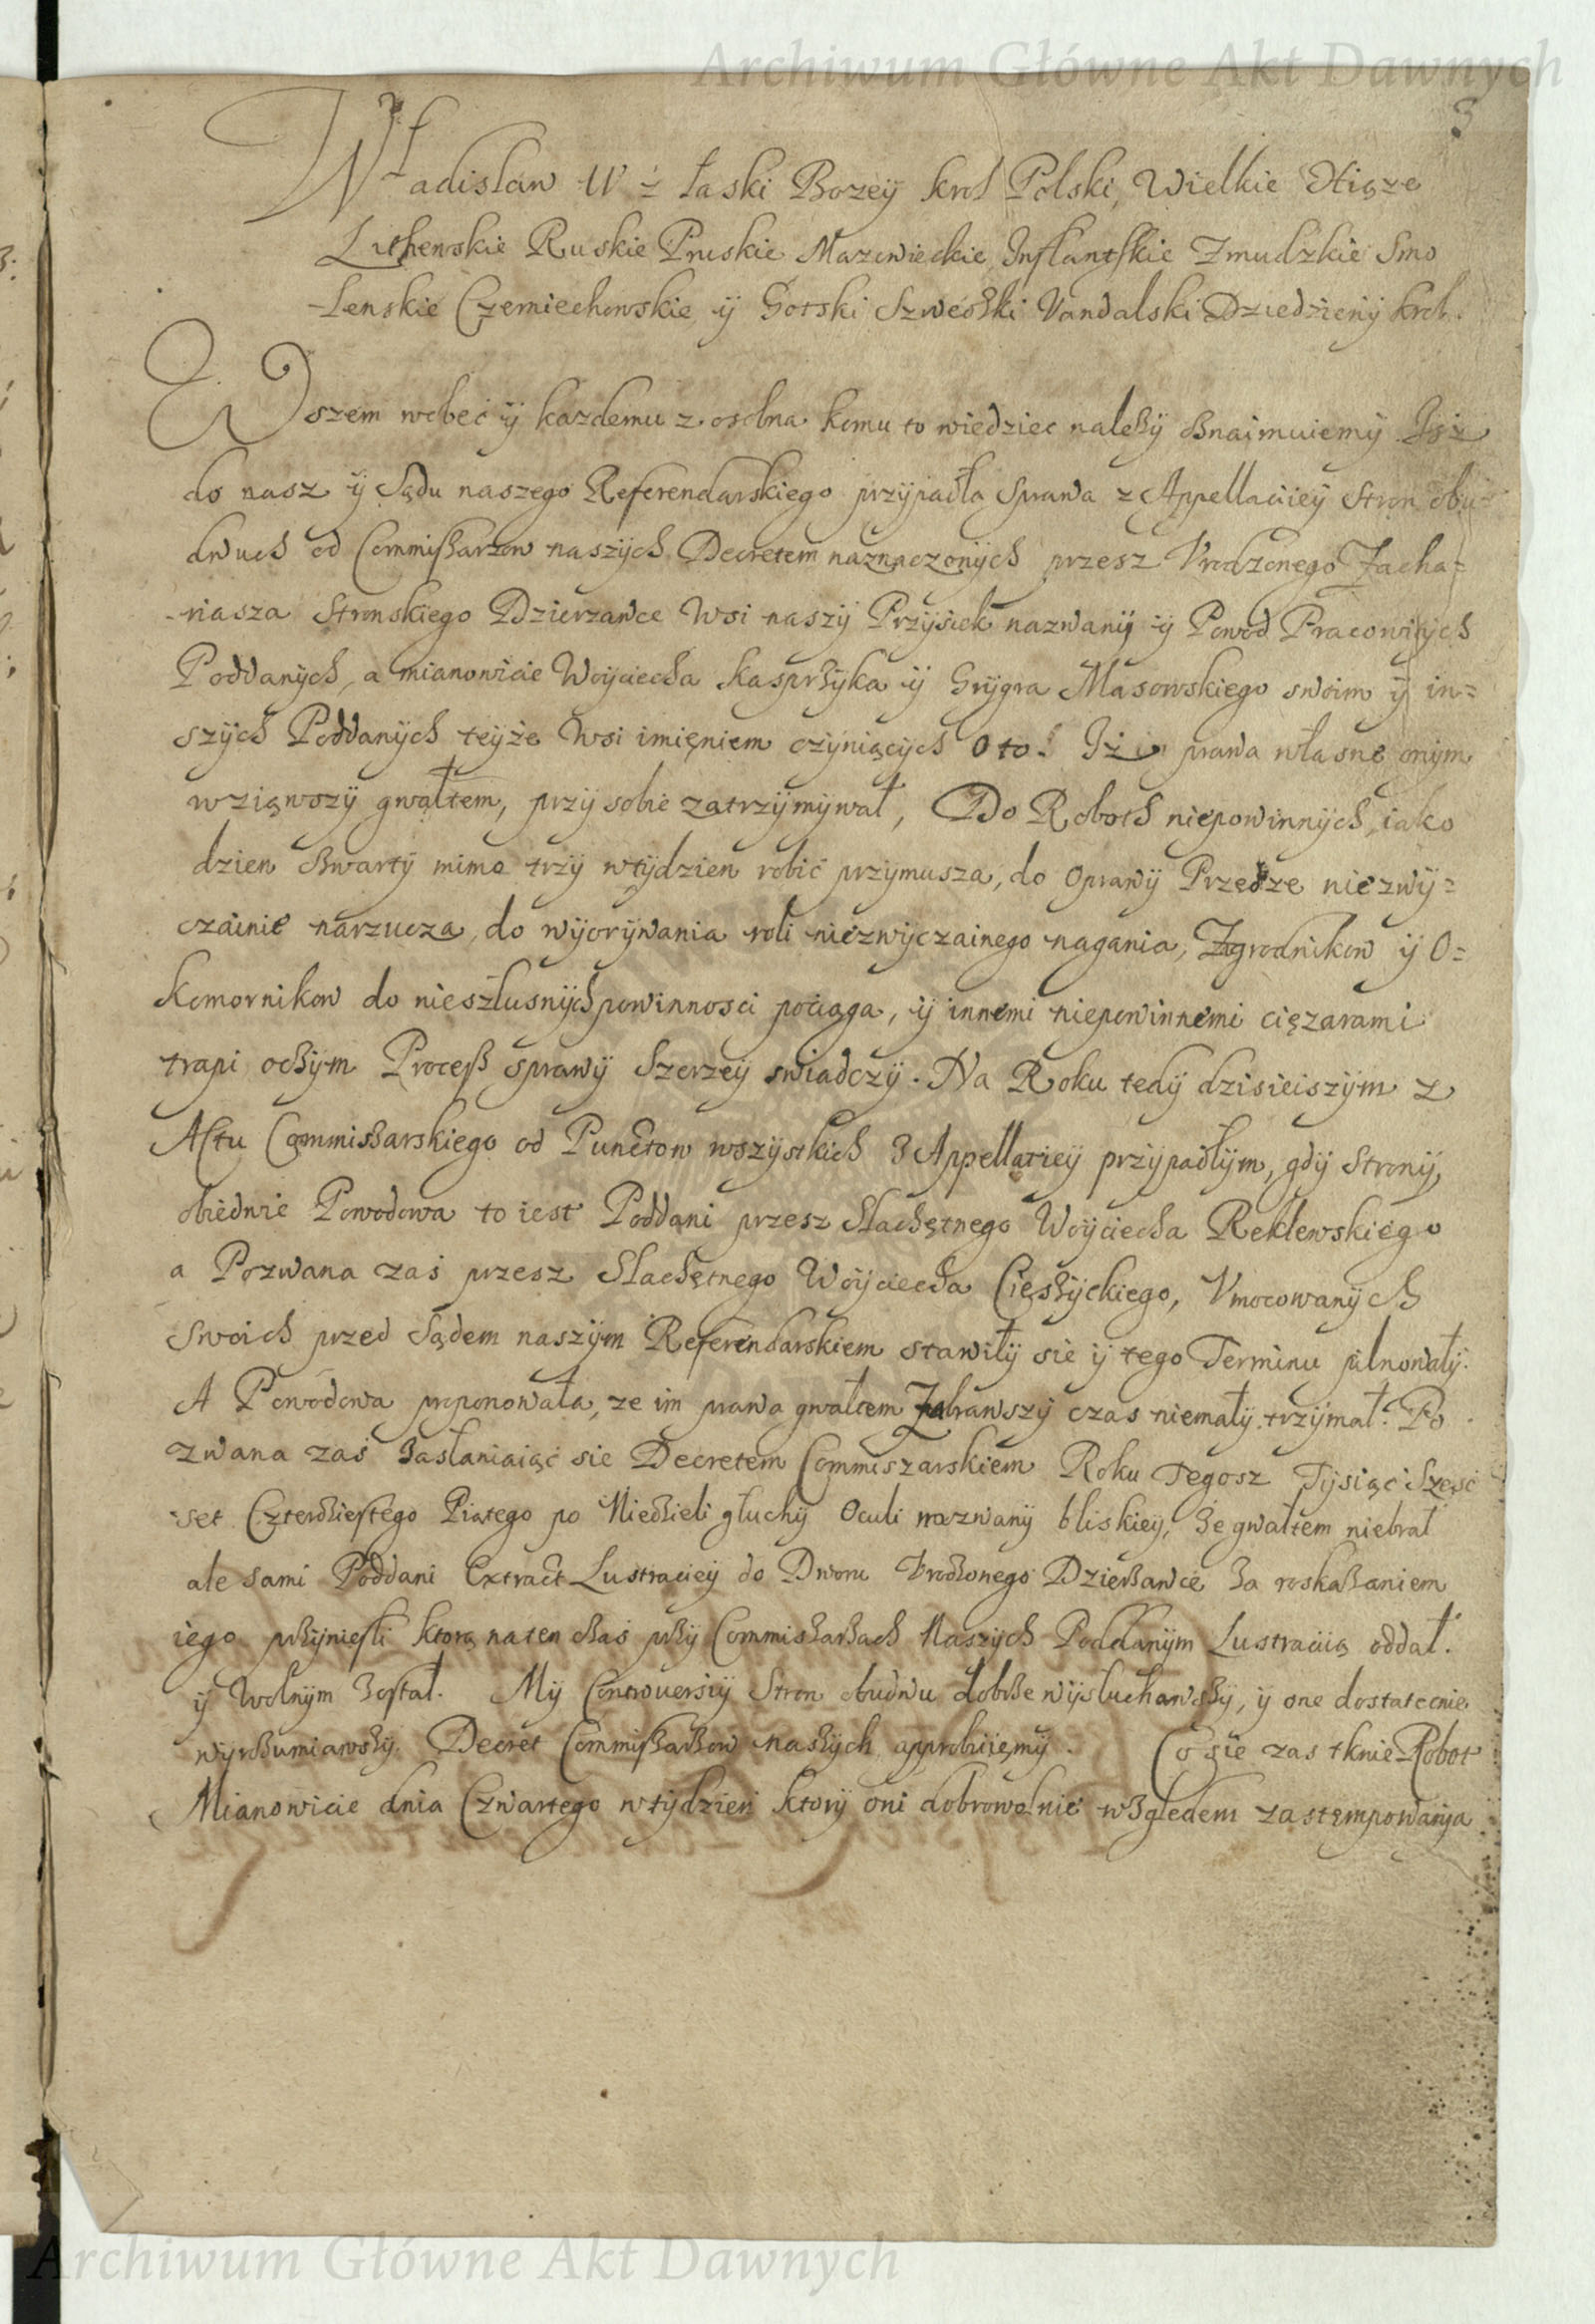 Archiwum Główne Akt Dawnych
3
Władisław IV z łaski Bozey krol Polski, Wielkie Xiąze
Lithewskie Ruskie Pruskie Mazowieckie Inflantskie Zmudzkie Smo
-lenskie Czerniechowskie, y Gotski Szwedzki Vandalski Dziedziczny krol.
Wszem wobec y kazdemu z osobna komu to wiedziec nalezy oznaimuiemy Isz
do nasz y Sądu naszego Referendarskiego przypadła Sprawa z Appellaciiey Stron obu=
dwuch od Commissarzow naszych Decretem naznaczonych przesz Vrodzonego Zacha=
-riasza Stronskiego Dzierzawce Wsi naszy Przysiek nazwany y Powod Pracowitych
Poddanych, a mianowicie Woyciecha Kasprzyka y Grygra Masowskiego swoim y in=
szych Poddanych teyze Wsi imięniem czyniących o to. Iż prawa własne onym
wziąwszy gwałtem, przy sobie zatrzymywał, Do Roboth niepowinnych, iako
dzien czwarty mimo trzy wtydzien robić przymusza, do oprawy Przedze niezwy=
czainie narzuca, do wyorywania roli niezwyczainego nagania, Zagrodnikow y O=
komornikow do niesłusnych powinnosci pociąga, y innemi niepowinnemi ciężarami
trapi oczym Process sprawy szerzey swiadczy. Na Roku tedy dzisieiszym z
Actu Commissarskiego od Punctow wszystkich z Appellatiey przypadłym, gdy Strony
obiedwie Powodowa to iest Poddani przesz Slachętnego Woyciecha Reklewskiego
a Pozwana zaś przesz Slachętnego Woyciecha Cięszyckiego, Vmocowanych
Swoich przed Sądem naszym Referendarskiem stawiły sie y tego Terminu pilnowały.
A Powodowa proponowała, ze im prawa gwałtem Zabrawszy czas niemały trzymał. Po
zwana zaś zasłaniaiąc sie Decretem Commiszarskiem Roku Tegosz Tysiąc Szesc
-set Czterdziestego Piątego po Niedzieli głuchy Oculi nazwany bliskiey, że gwałtem niebrał
ale sami Poddani Extract Lustraciey do Dworu Vrodzonego Dzierzawce za roskazaniem
iego przyniesli ktorą naten czas przy Commissarzach Naszych Poddanym Lustracią oddał.
y Wolnym został. My Controversiy Stron obudwu dobrze wysłuchawszy, y one dostatecnie
wyrozumiawszy. Decret Commissarzow naszych approbuiemy. Co sie zas tknie Robot
Mianowicie dnia Czwartego wtydzień ktory oni dobrowolnie względem zastęmpowania
Archiwum Główne Akt Dawnych